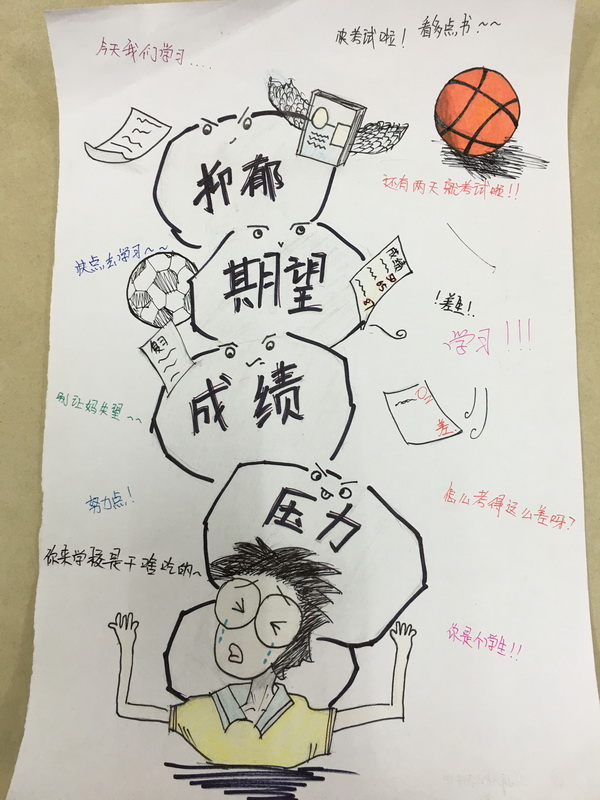 今天我们学习....
快考试啦！
看多点书~~
抑郁
还有两天就考试啦!!
快点去学习~~
期望
成绩
!差生!!
学习!!!
复习
成绩
别让妈失望~~
差
压力
努力点!
怎么考得这么差呀?
你来学校是干啥吃的~
你是个学生!!